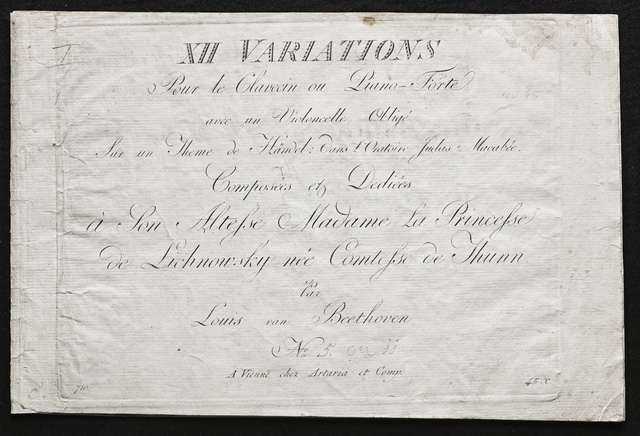 XII VARIATIONS
Pour le Clavecin ou Piano-Forte
avec un Violoncelle Obligé
Sur un Theme de Händel: dans l'Oratoire Judas-Macabée.
Composées et Dediées
à Son Altesse Madame La Princesse
de Lichnowsky née Comtesse de Thunn
par
Louis van Beethoven
No 5.
A Vienne chez Artaria et Comp.
710.
45 X